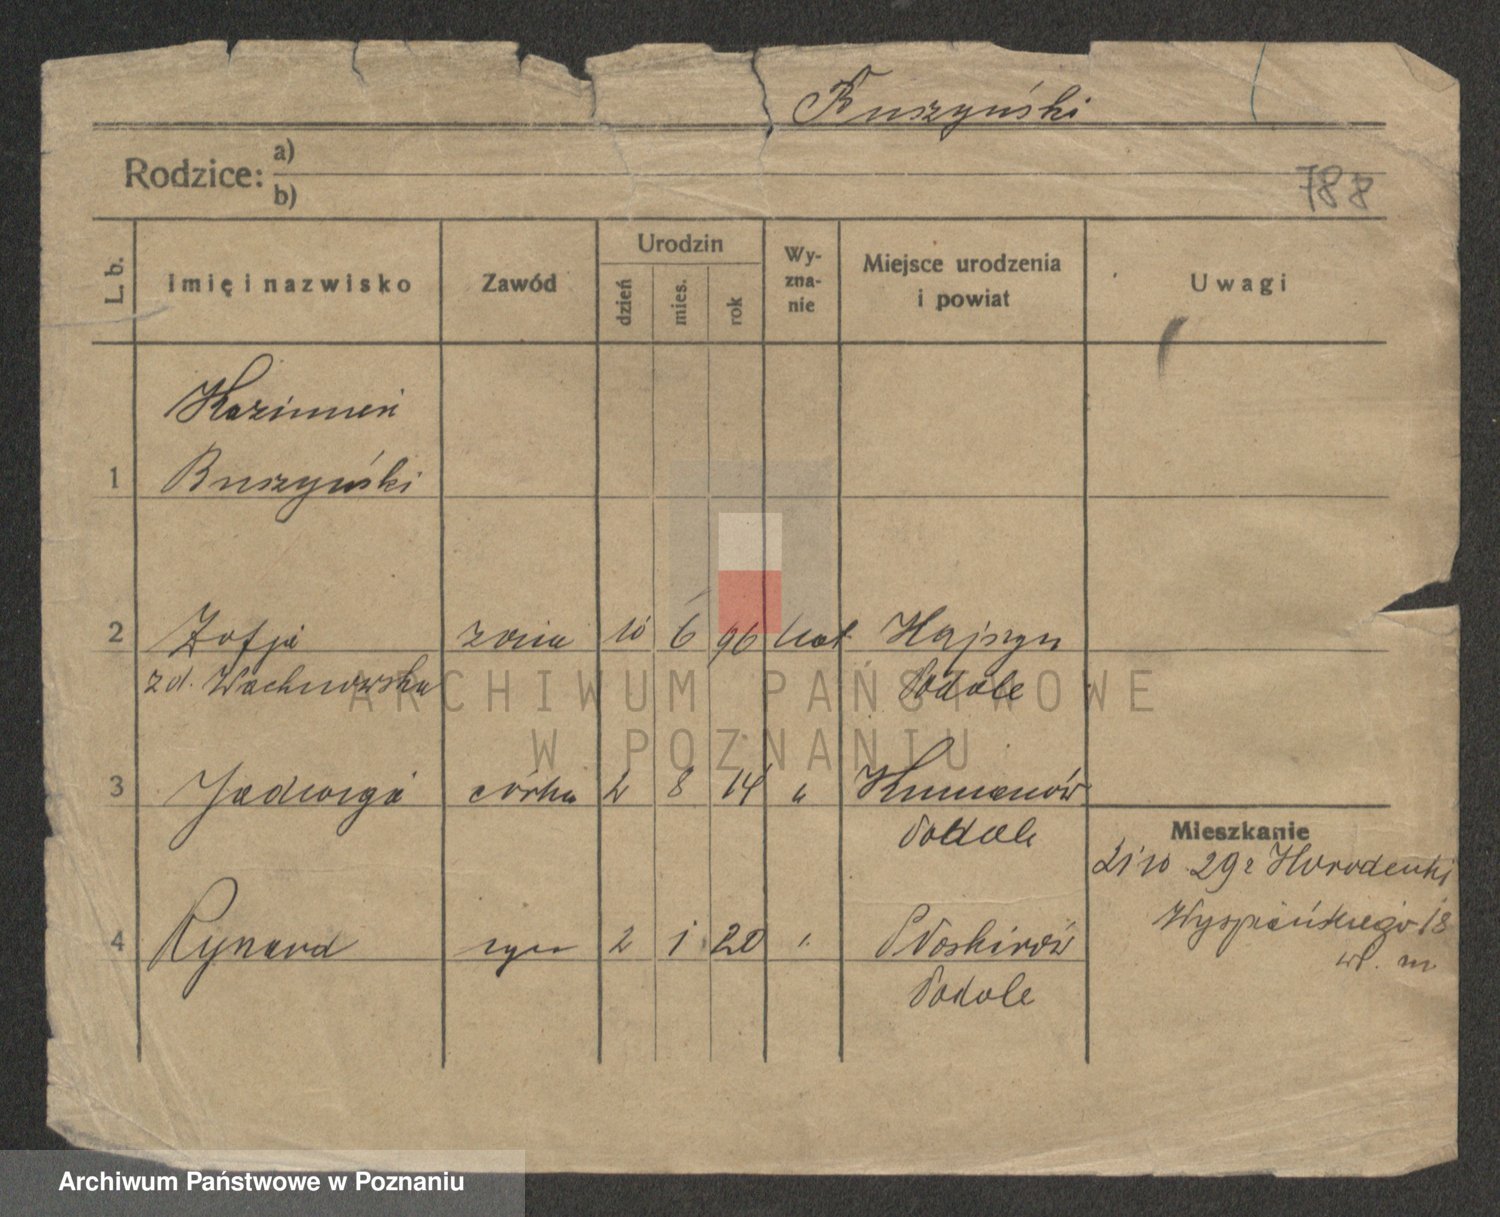 Ruszyński
Rodzice: a)
b)
788
L. b.
Imię i nazwisko
Zawód
Urodzin
dzień
mies.
rok
Wy-
zna-
nie
Miejsce urodzenia
i powiat
Uwagi
Kazimierz
1 Ruszyński
2 Zofja żona 10 6 96 kat Hajsyn
z d. Wachnowska Podole
3 Jadwiga córka 2 8 14 " Kumanów
Podole
Mieszkanie
21/10 29 z Horodenki
Wyspiańskiego 18
wł. m.
4 Rynard syn 2 1 20 " Płoskirów
Podole
ARCHIWUM PAŃSTWOWE
W POZNANIU
Archiwum Państwowe w Poznaniu